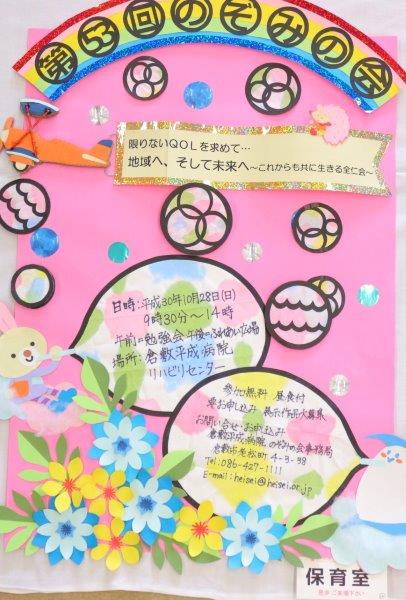 第53回のぞみの会
限りないQOLを求めて…
地域へ、そして未来へ～これからも共に生きる全仁会～
日時:平成30年10月28日(日)
9時30分～14時
午前=勉強会 午後=ふれあい広場
場所:倉敷平成病院
リハビリセンター
参加無料 昼食付
要お申し込み 展示作品大募集
お問い合せ・お申込み
倉敷平成病院のぞみの会事務局
倉敷市老松町4-3-38
Tel:086-427-1111
E-mail:heisei@heisei.or.jp
保育室
是非ご来場下さい